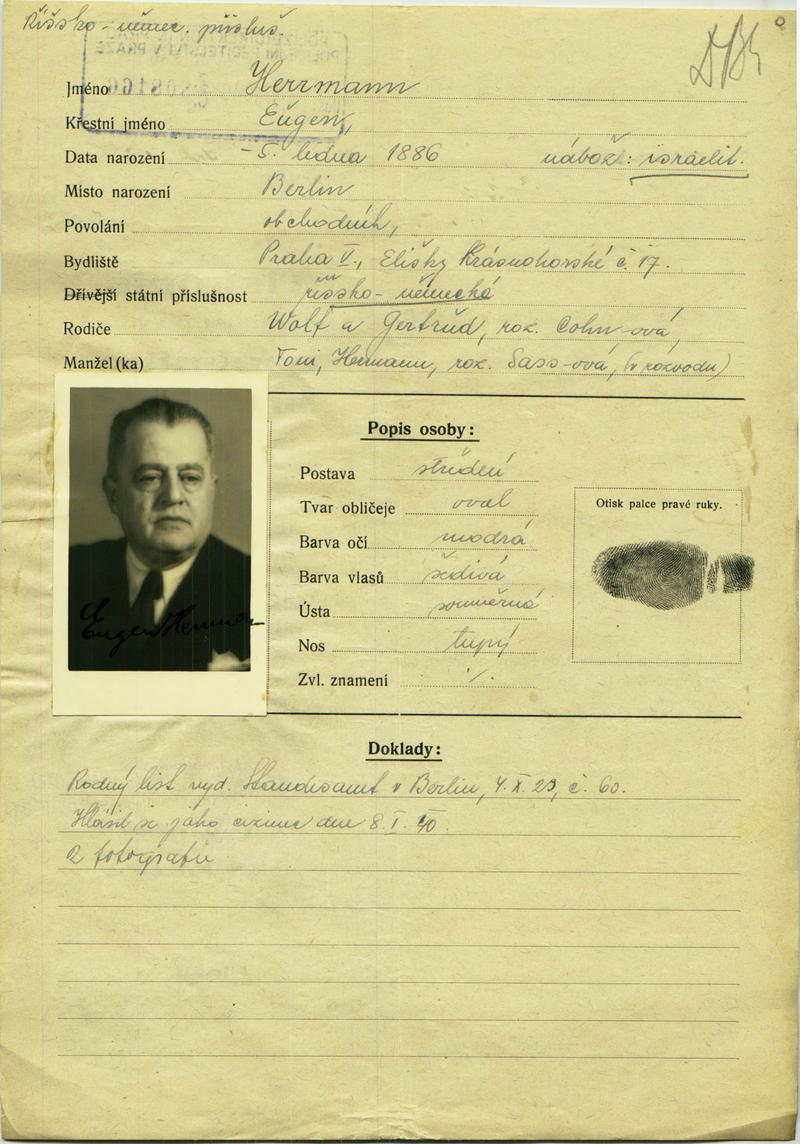 Říšsko-němec. přísluš.
Jméno Herrmann
Křestní jméno Eugen,
Data narození -5. ledna 1886 nábož: israelit.
Místo narození Berlin
Povolání obchodník,
Bydliště Praha V., Elišky Krásnohorské č. 17.
Dřívější státní příslušnost říšsko-německá
Rodiče Wolf a Gertrud, roz. Cohn-ová,
Manžel(ka) Toni, Hermann, roz. Sass-ová, (v rozvodu)
Popis osoby:
Postava střední
Tvar obličeje oval
Barva očí modrá
Barva vlasů šedivá
Ústa souměrná
Nos tupý
Zvl. znamení ·/.
Otisk palce pravé ruky.
Eugen Herrmann
Doklady:
Rodný list vyd. Standesamt v Berlin, 4.X.23, č. 60.
Hlásil se jako cizinec dne 8.I.40.
2 fotografie